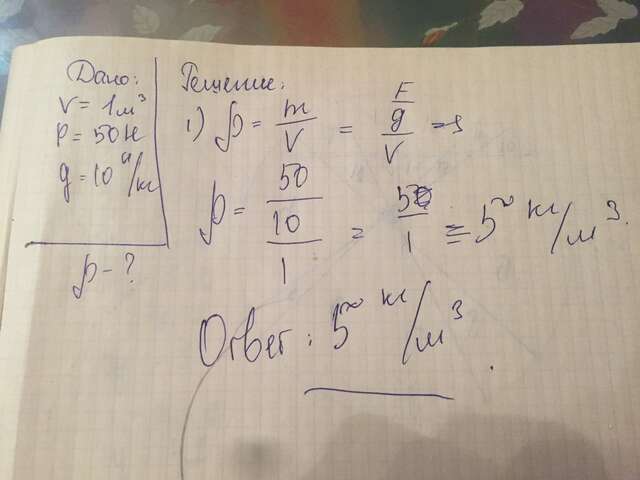 Дано:
V = 1 м³
P = 50 Н
g = 10 Н/кг
ρ - ?
Решение:
1) ρ = m/V = F/g/V =>
ρ = 50/10/1 = 5/1 = 5 кг/м³.
Ответ: 5 кг/м³.